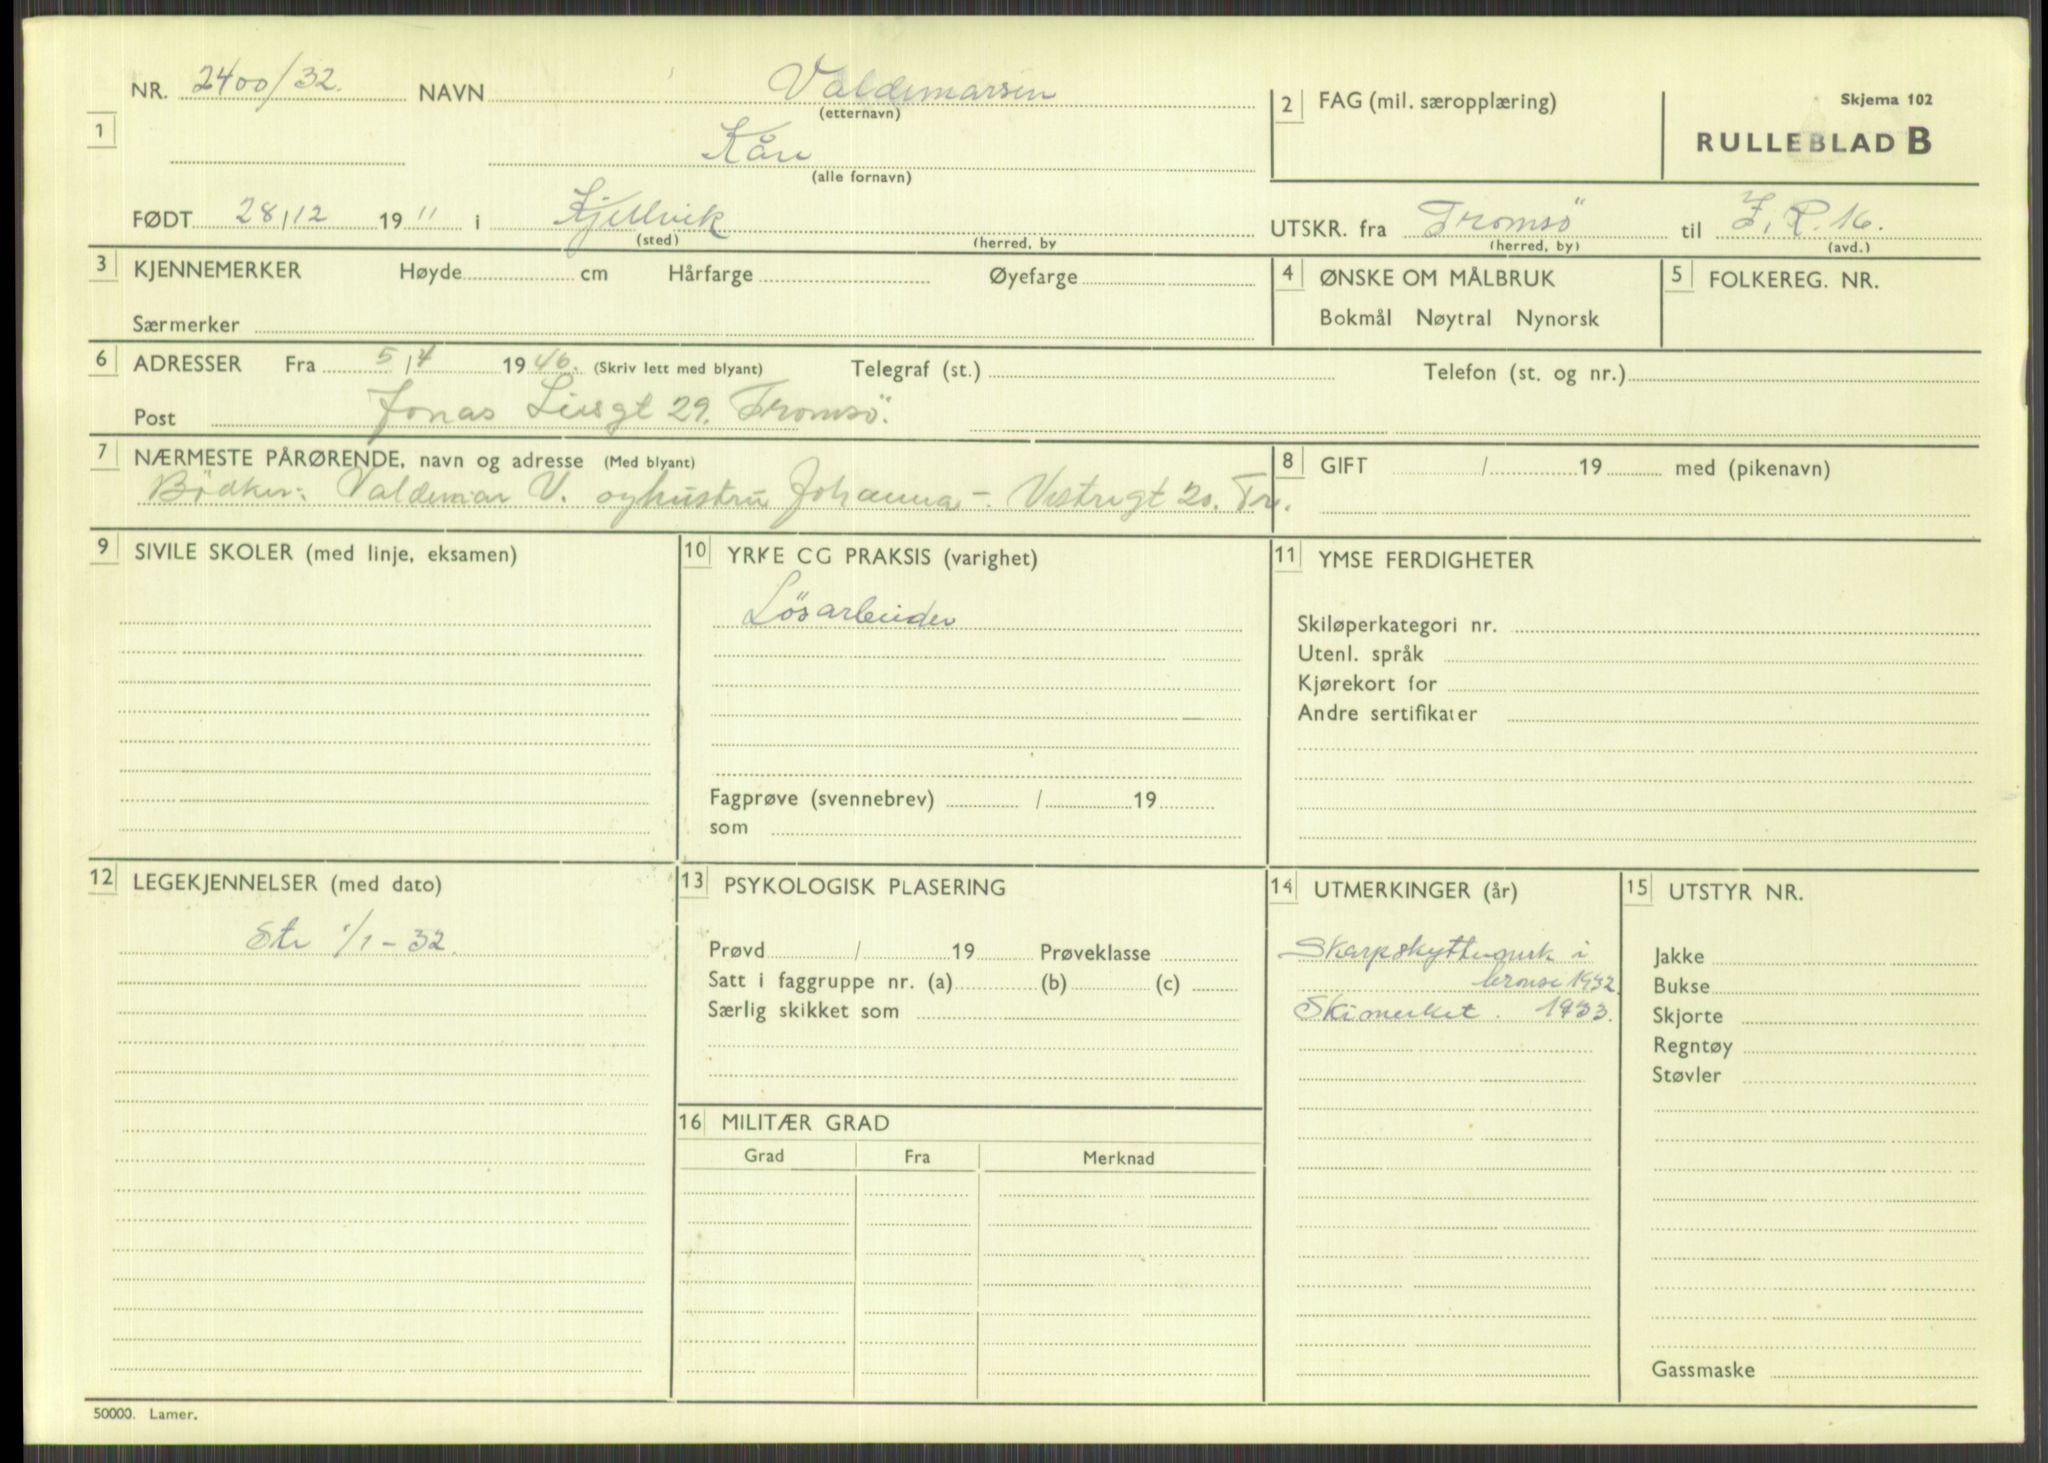 NR. 2400/32. NAVN Valdemarsen
(etternavn)
1
Kåre
(alle fornavn)
2 FAG (mil. særopplæring)
Skjema 102
RULLEBLAD B
FØDT 28/12 1911 i Kjelvik
(sted) (herred, by
UTSKR. fra Tromsö til I.R. 16.
(herred, by) (avd.)
3 KJENNEMERKER Høyde cm Hårfarge Øyefarge
Særmerker
4 ØNSKE OM MÅLBRUK
Bokmål Nøytral Nynorsk
5 FOLKEREG. NR.
6 ADRESSER Fra 5/4 1946. (Skriv lett med blyant) Telegraf (st.) Telefon (st. og nr.)
Post Jonas Liesgt 29. Tromsö.
7 NÆRMESTE PÅRØRENDE, navn og adresse (Med blyant)
Bödker: Valdemar V. og hustru Johanna – Vestregt 20. Tr.
8 GIFT / 19 med (pikenavn)
9 SIVILE SKOLER (med linje, eksamen)
10 YRKE CG PRAKSIS (varighet)
Lösarbeider
Fagprøve (svennebrev) / 19
som
11 YMSE FERDIGHETER
Skiløperkategori nr.
Utenl. språk
Kjørekort for
Andre sertifikater
12 LEGEKJENNELSER (med dato)
Str 1/1 – 32.
13 PSYKOLOGISK PLASERING
Prøvd / 19 Prøveklasse
Satt i faggruppe nr. (a) (b) (c)
Særlig skikket som
14 UTMERKINGER (år)
Skarpskyttermerk i
bronse 1932.
Skimerket. 1933.
15 UTSTYR NR.
Jakke
Bukse
Skjorte
Regntøy
Støvler
Gassmaske
16 MILITÆR GRAD
Grad Fra Merknad
50000. Lamer.